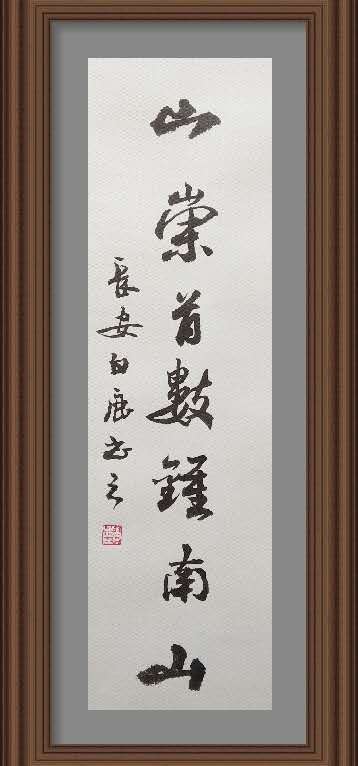 山崇首數鍾南山
長安白鹿書之